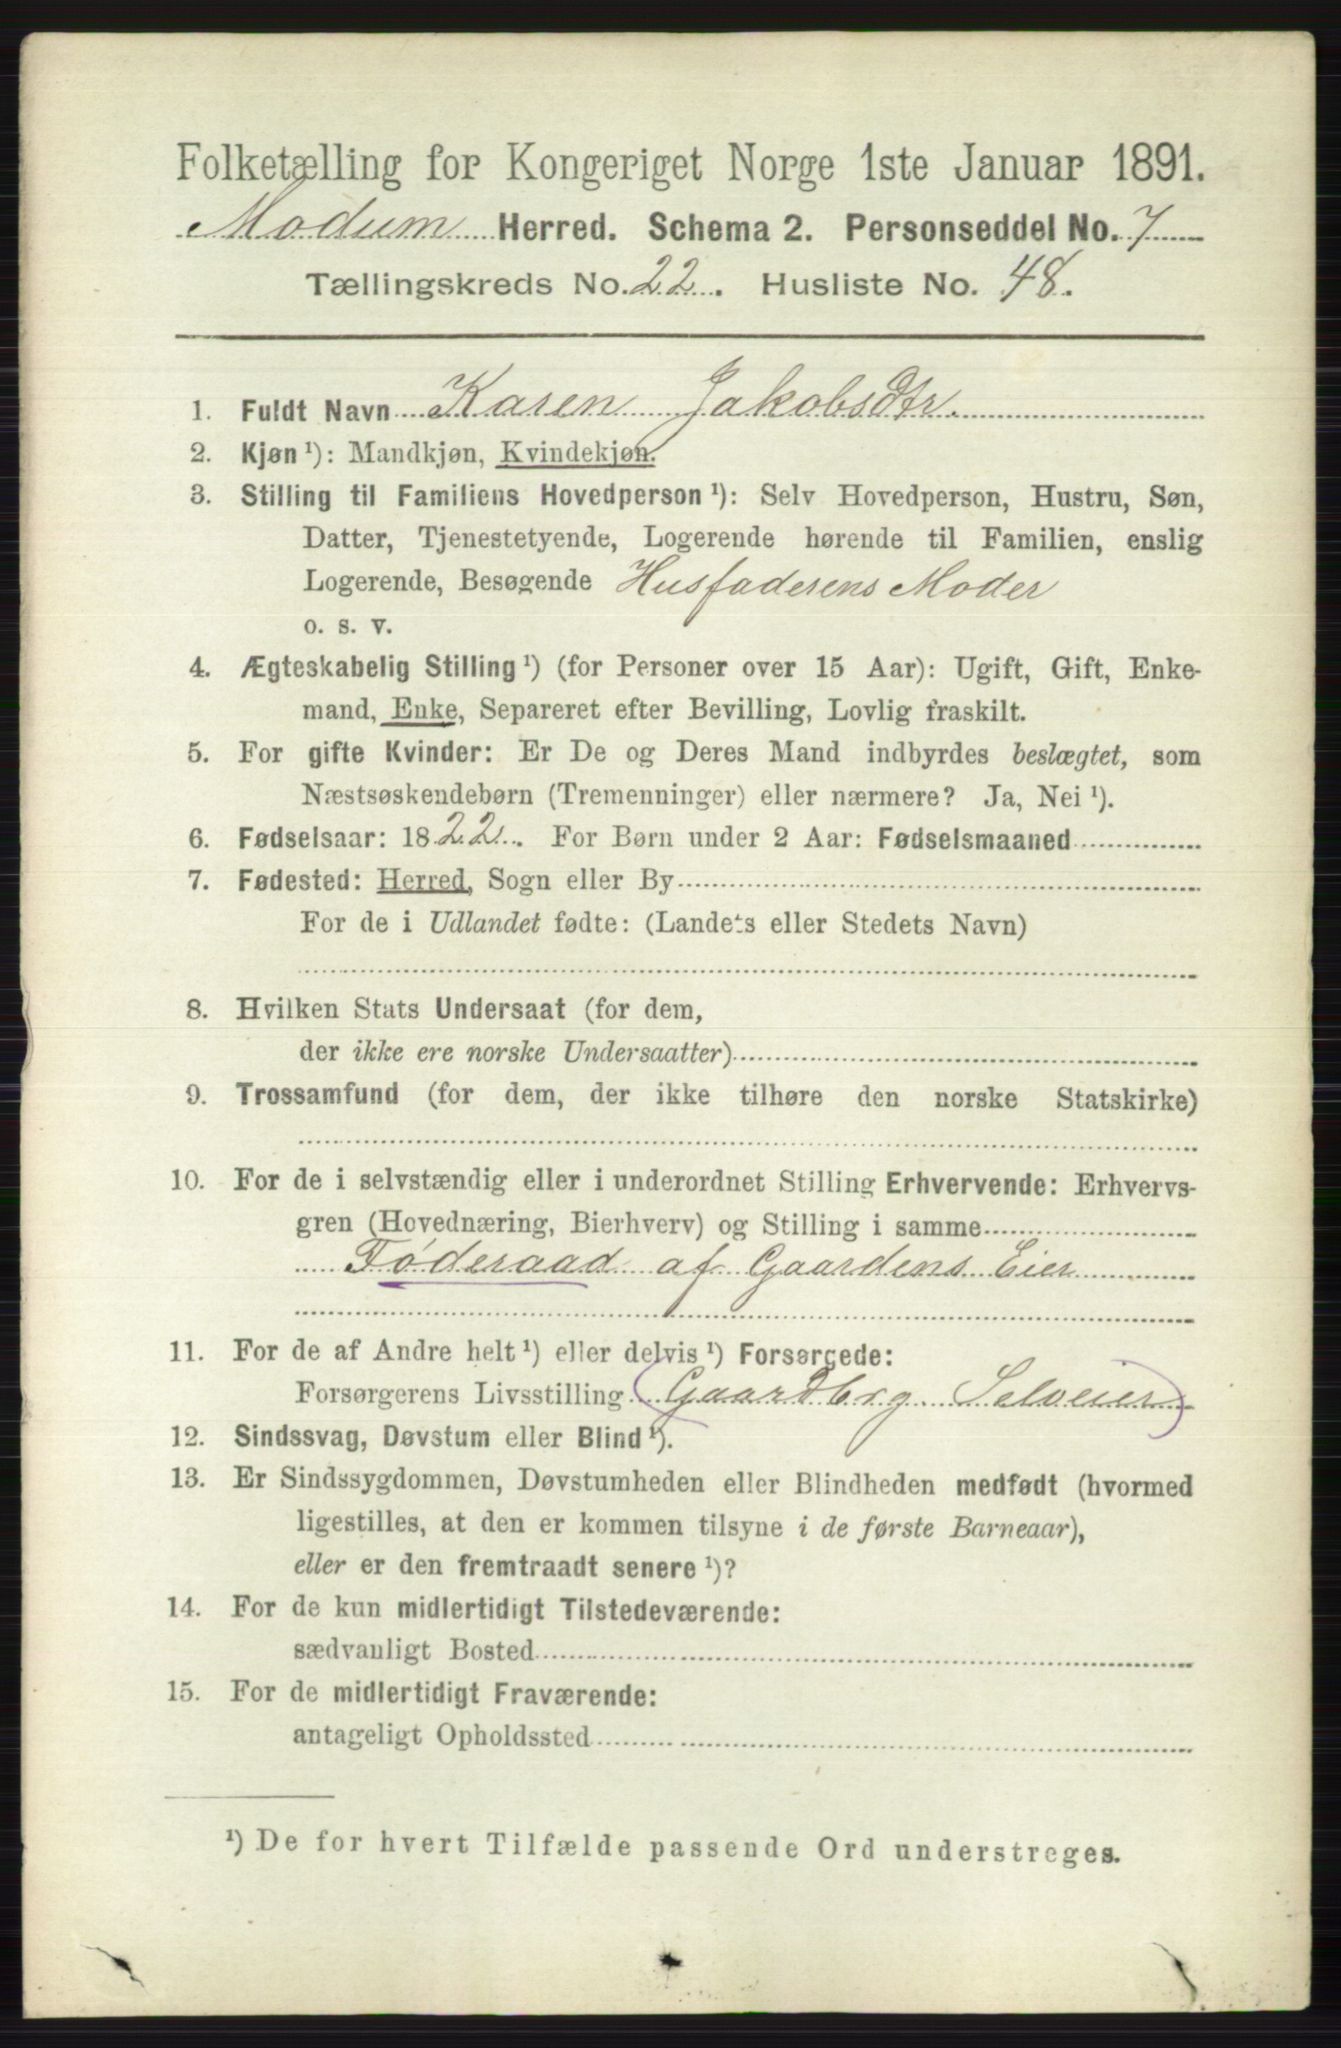 Folketælling for Kongeriget Norge 1ste Januar 1891.
Modum Herred. Schema 2. Personseddel No. 7
Tællingskreds No. 22. Husliste No. 48.
1. Fuldt Navn Karen Jakobsdtr.
2. Kjøn ¹): Mandkjøn, Kvindekjøn.
3. Stilling til Familiens Hovedperson ¹): Selv Hovedperson, Hustru, Søn,
Datter, Tjenestetyende, Logerende hørende til Familien, enslig
Logerende, Besøgende Husfaderens Moder
o. s. v.
4. Ægteskabelig Stilling ¹) (for Personer over 15 Aar): Ugift, Gift, Enke-
mand, Enke, Separeret efter Bevilling, Lovlig fraskilt.
5. For gifte Kvinder: Er De og Deres Mand indbyrdes beslægtet, som
Næstsøskendebørn (Tremenninger) eller nærmere? Ja, Nei ¹).
6. Fødselsaar: 1822. For Børn under 2 Aar: Fødselsmaaned
7. Fødested: Herred, Sogn eller By
For de i Udlandet fødte: (Landets eller Stedets Navn)
8. Hvilken Stats Undersaat (for dem,
der ikke ere norske Undersaatter)
9. Trossamfund (for dem, der ikke tilhøre den norske Statskirke)
10. For de i selvstændig eller i underordnet Stilling Erhvervende: Erhvervs-
gren (Hovednæring, Bierhverv) og Stilling i samme
Føderaad af Gaardens Eier
11. For de af Andre helt ¹) eller delvis ¹) Forsørgede:
Forsørgerens Livsstilling (Gaardbrg Selveier)
12. Sindssvag, Døvstum eller Blind ¹).
13. Er Sindssygdommen, Døvstumheden eller Blindheden medfødt (hvormed
ligestilles, at den er kommen tilsyne i de første Barneaar),
eller er den fremtraadt senere ¹)?
14. For de kun midlertidigt Tilstedeværende:
sædvanligt Bosted
15. For de midlertidigt Fraværende:
antageligt Opholdssted
¹) De for hvert Tilfælde passende Ord understreges.